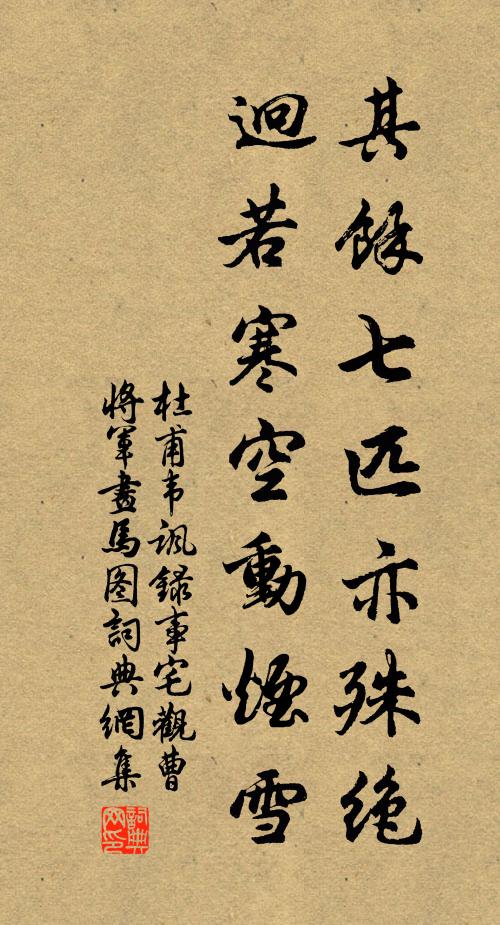 其餘七匹亦殊绝
迥若寒空動煙雪
杜甫韦諷録事宅觀曹
将軍畫馬图詞典網集
詞典网印